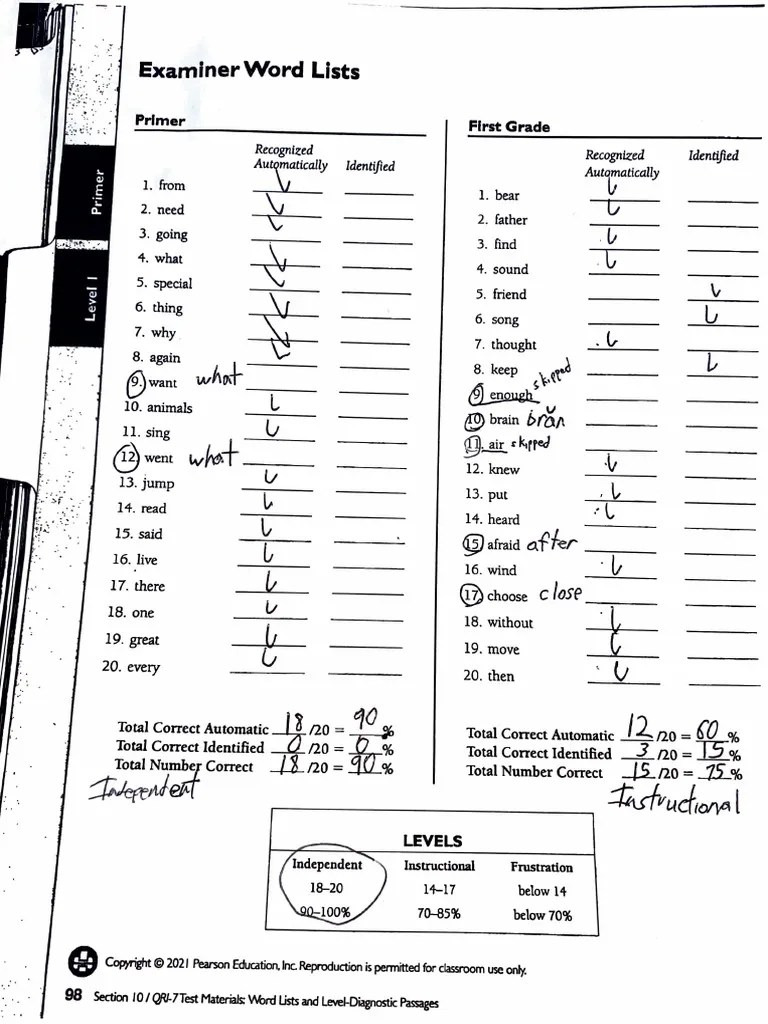 Examiner Word Lists
Primer
Level 1
Primer
Recognized Automatically Identified
1. from
2. need
3. going
4. what
5. special
6. thing
7. why
8. again
9. want what
10. animals
11. sing
12. went what
13. jump
14. read
15. said
16. live
17. there
18. one
19. great
20. every
Total Correct Automatic 18 /20 = 90 %
Total Correct Identified 0 /20 = 0 %
Total Number Correct 18 /20 = 90 %
Independent
First Grade
Recognized Automatically Identified
1. bear
2. father
3. find
4. sound
5. friend
6. song
7. thought
8. keep
9. enough skipped
10. brain brăn
11. air skipped
12. knew
13. put
14. heard
15. afraid after
16. wind
17. choose close
18. without
19. move
20. then
Total Correct Automatic 12 /20 = 60 %
Total Correct Identified 3 /20 = 15 %
Total Number Correct 15 /20 = 75 %
Instructional
LEVELS
Independent Instructional Frustration
18–20 14–17 below 14
90–100% 70–85% below 70%
Copyright © 2021 Pearson Education, Inc. Reproduction is permitted for classroom use only.
98 Section 10 / QRI-7 Test Materials: Word Lists and Level-Diagnostic Passages